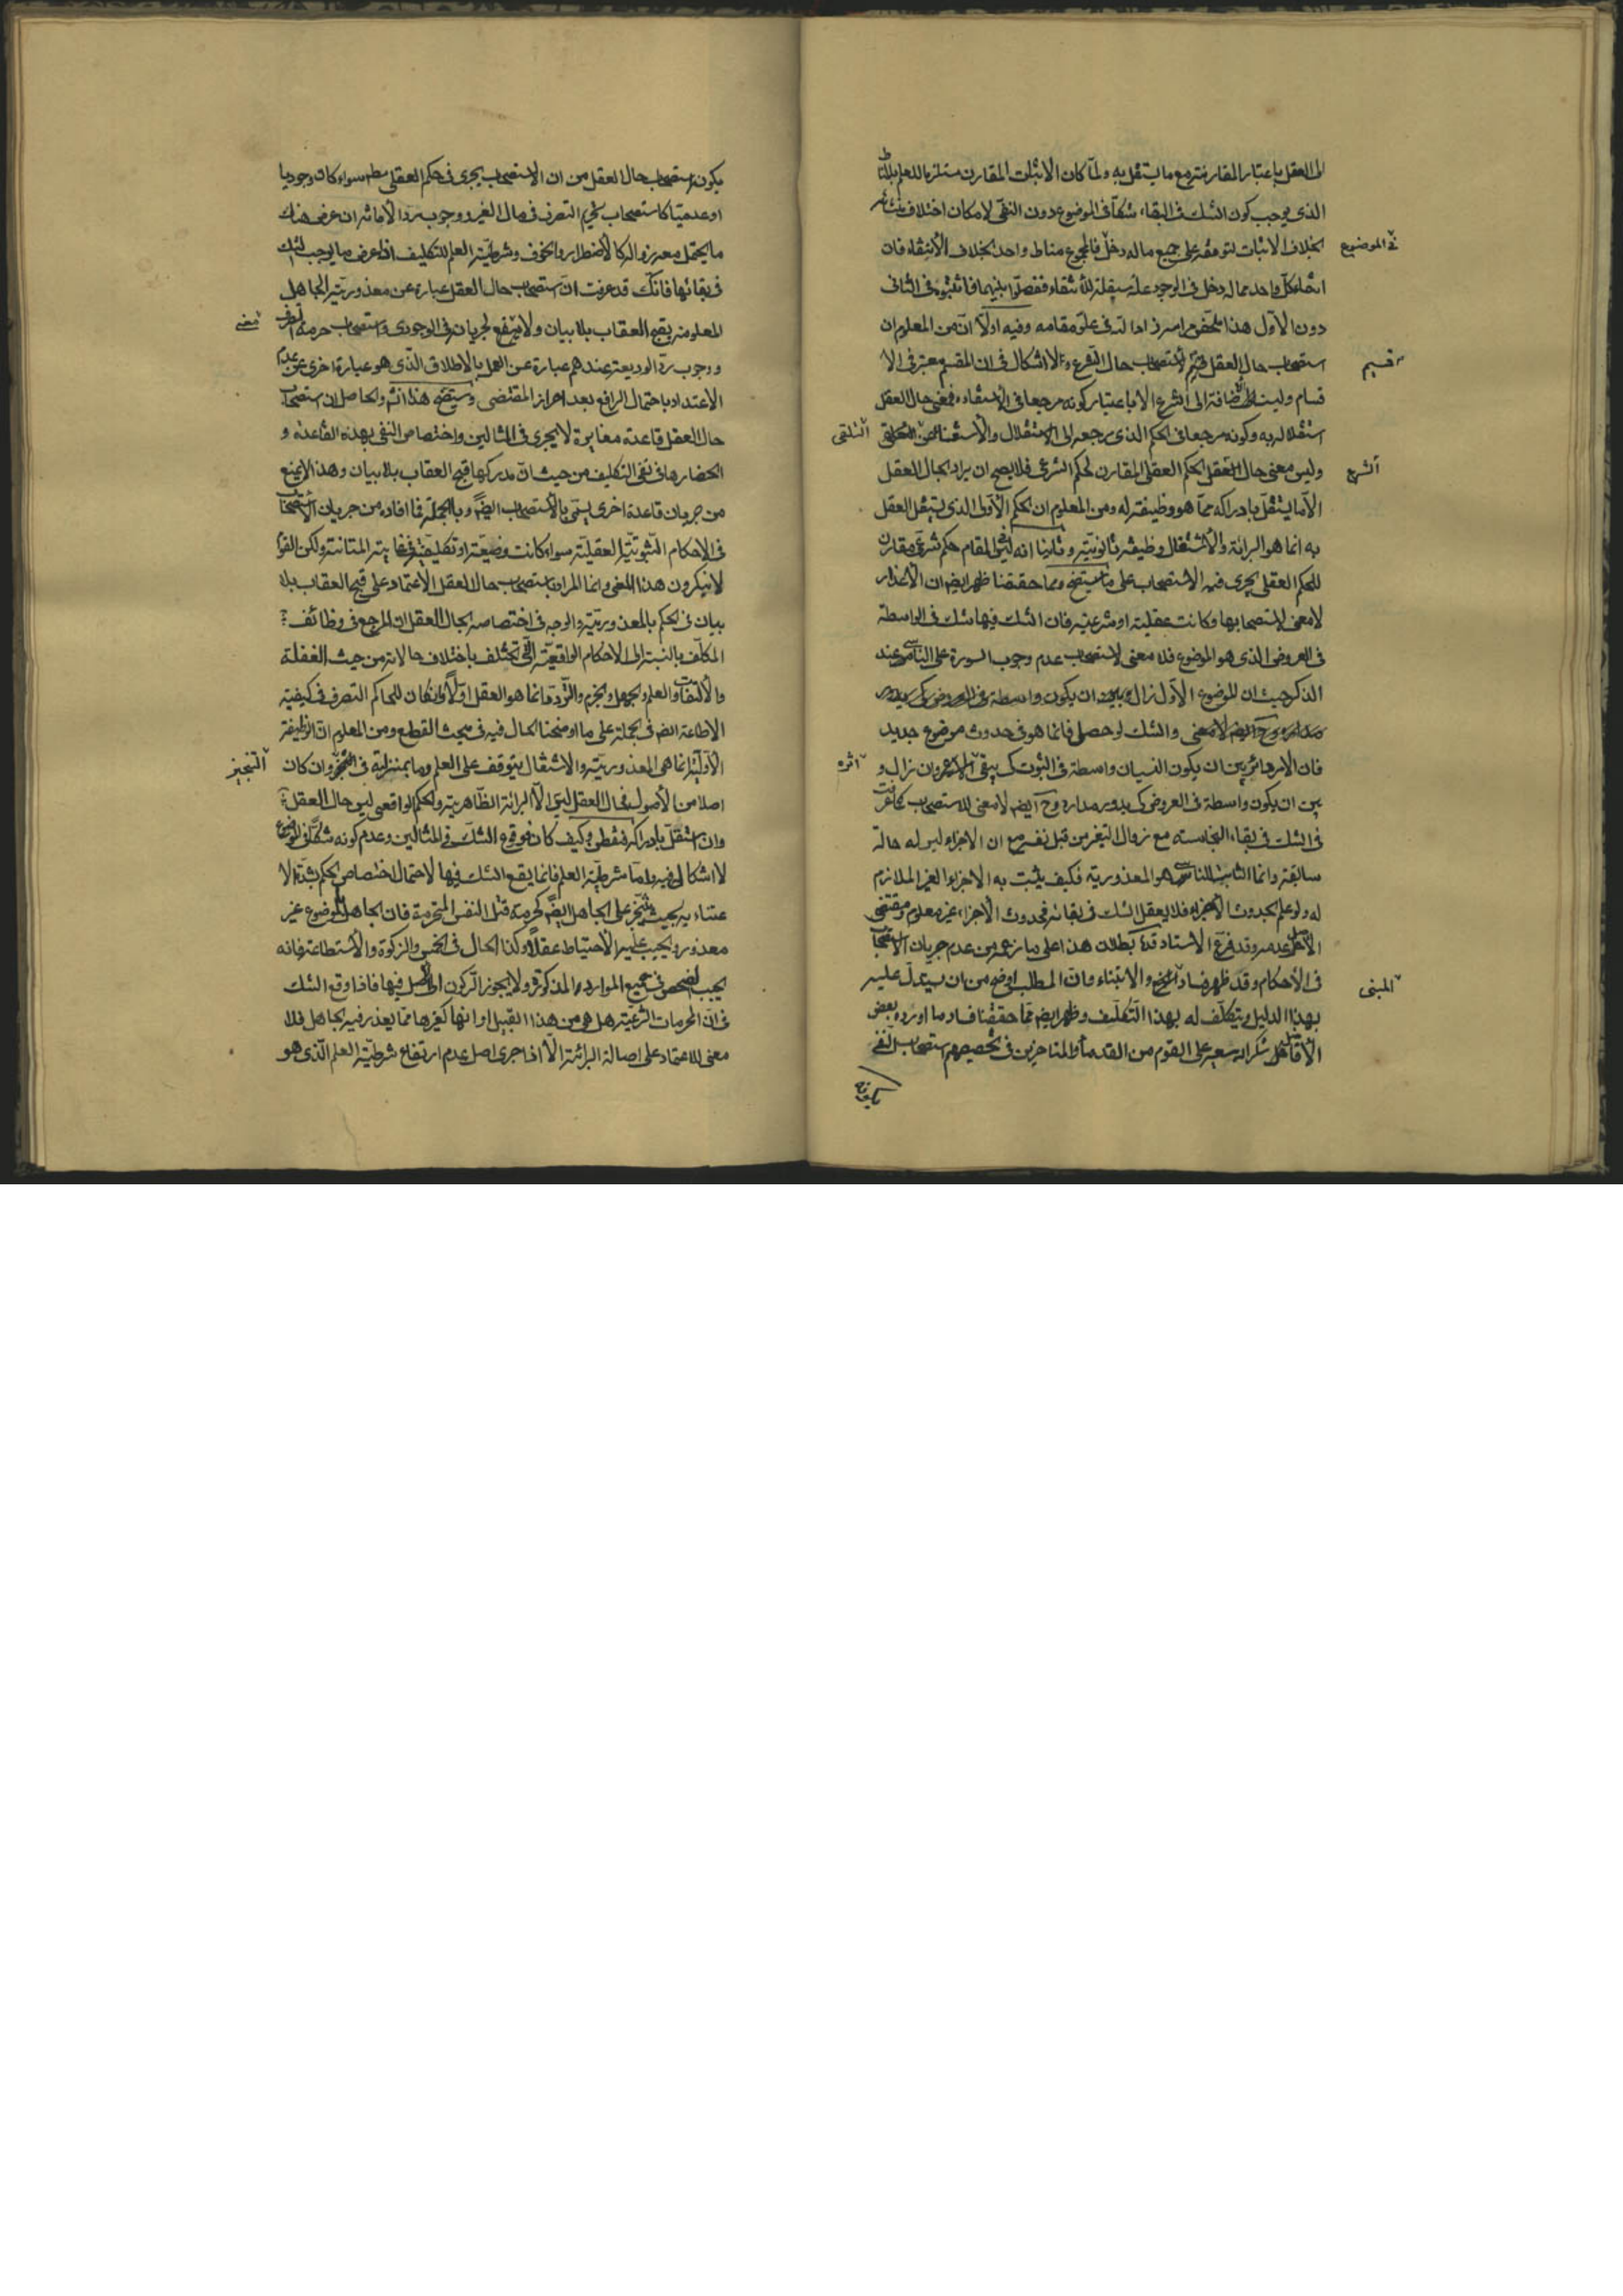 الى العقل باعتبار المقارنة مع ما يستقل به ولما كان الاثبات المقارن مستلزما للعلم بالمناط
الذى يوجب كون الشك فى البقاء شكا فى الموضوع دون النفى لامكان اختلاف
بخلاف الاثبات لتوقفه على جميع ماله دخل فالمجموع مناط واحد بخلاف الانتفاء فان
فى الموضوع
انتفاء كل واحد مما له دخل فى الوجود علة مستقلة للانتفاء ففصلوا بينهما فاثبتوه فى الثانى
دون الاول هذا ملخص مراسم زاد الله فى علو مقامه وفيه اولا ان من المعلوم ان
استصحاب حال العقل قسيم لاستصحاب حال الشرع ولا اشكال فى ان المقسم معتبر فى الا
قسيم
قسام وليست الاضافة الى الشرع الا باعتبار كونه مرجعا فى الاستفادة فمعنى حال العقل
استقلاله به وكونه مرجعا فى الحكم الذى مرجعه الى الاستقلال والاستغناء عن التلقى
التلقى
وليس معنى حال العقل الحكم العقلى المقارن لحكم الشرعى فلا يصح ان يراد بحال العقل
الشرع
الا ما يستقل بادراكه مما هو وظيفته له ومن المعلوم ان الحكم الاولى الذى يستقل العقل
به انما هو البرائة والاشتغال وظيفة ثانوية وثانيا انه ليس فى المقام حكم شرعى مقارن
للحكم العقلى يجرى فيه الاستصحاب على ما سيتضح ومما حققنا ظهر ايضا ان الاعذار
لا معنى لاستصحابها وكانت عقلية او شرعية فان الشك فيها شك فى الواسطة
فى العروض الذى هو الموضوع فلا معنى لاستصحاب عدم وجوب السورة على الناسى عند
الذكر حيث ان الموضوع الاول زال
والشك لو حصل فانما هو فى حدوث موضوع جديد
فان الامر دائر بين ان يكون النسيان واسطة فى الثبوت كى يبقى وان زال و
اثره
بين ان يكون واسطة فى العروض كى يدور مداره وح ايضا لا معنى للاستصحاب كما عرفت
فى الشك فى بقاء النجاسة مع زوال التغير من قبل نفسه مع ان الاجزاء ليس له حالة
سابقة وانما الثابت للناسى هو المعذورية فكيف يثبت به الاجزاء الغير الملازم
له ولو علم بحدوث الاجزاء فلا يعقل الشك فى بقائه فحدوث الاجزاء غير معلوم ومقتضى
الاصل عدمه وقد فرع الاستاد قده بطلان هذا على ما زعمه من عدم جريان الاستصحاب
فى الاحكام وقد ظهر فساد المبنى والابتناء وان المطلب اوضح من ان يستدل عليه
المبنى
بهذا الدليل ويتكلف له بهذا التكلف وظهر ايضا مما حققنا فساد ما اورده بعض
الافاضل شكر الله سعيه على القوم من القدماء والمتاخرين فى تخصيصهم استصحاب النفى
يكون استصحاب حال العقل من ان الاستصحاب يجرى فى حكم العقلى مطم سواء كان وجوديا
او عدميا كاستصحاب تحريم التصرف فى مال الغير ووجوب رد الامانة ان عرض هناك
ما يحتمل معه زواله كالاضطرار والخوف وشرطية العلم للتكليف اذا عرض ما يوجب الشك
فى بقائها فانك قد عرفت ان استصحاب حال العقل عبارة عن معذورية الجاهل
المعلومة بقبح العقاب بلا بيان ولا معنى لجريانه فى الوجودى واستصحاب حرمة التصرف
معنى
ووجوب رد الوديعة عندهم عبارة عن العمل بالاطلاق الذى هو عبارة اخرى عن عدم
الاعتداد باحتمال الرافع بعد احراز المقتضى وسيتضح هذا انشه والحاصل ان استصحاب
حال العقل قاعدة مغايرة لا يجرى فى المثالين واختصاص النفى بهذه القاعدة و
انحصارها فى نفى التكليف من حيث ان مدركها قبح العقاب بلا بيان وهذا لا يمنع
من جريان قاعدة اخرى يسمى بالاستصحاب ايضا وبالجملة فما افاده من جريان الاستصحاب
فى الاحكام الثبوتية العقلية سواء كانت وضعية او تكليفية فى غاية المتانة ولكن القوم
لا ينكرون هذا المعنى وانما المراد باستصحاب حال العقل الاعتماد على قبح العقاب بلا
بيان فى الحكم بالمعذورية والوجه فى اختصاصه بحال العقل ان المرجع فى وظائف
المكلف بالنسبة الى الاحكام الواقعية التى تختلف باختلاف حالاته من حيث الغفلة
والالتفات والعلم والجهل والجزم والتردد فانما هو العقل اولا وان كان للحاكم التصرف فى كيفية
الاطاعة ايضا فى الجملة على ما اوضحنا الحال فيه فى مبحث القطع ومن المعلوم ان الوظيفة
الاولية انما هى المعذورية والاشتغال يتوقف على العلم وما بمنزلته فى التنجيز وان كان
التنجيز
اصلا من الاصول فحال العقل ليس الا البرائة الظاهرية والحكم الواقعى ليس حال العقل
وان استقل بادراكه فقطع وكيف كان فوقوع الشك فى المثالين وعدم كونه شكا فى الموضوع
لا اشكال فيه واما شرطية العلم فانما يقع الشك فيها لاحتمال اختصاص الحكم بشدة الا
عتناء به بحيث يتنجز على الجاهل ايضا كحرمة قتل النفس المحترمة فان الجاهل بالموضوع غير
معذور ويجب عليه الاحتياط عقلا وكذا الحال فى الخمس والزكوة والاستطاعة فانه
يجب الفحص فى جميع الموارد المذكورة ولا يجوز الركون الى الاصل فيها فاذا وقع الشك
فى ان المحرمات الشرعية هل هى من هذا القبيل او انها كغيرها مما يعذر فيه الجاهل فلا
معنى للاعتماد على اصالة البرائة الا اذا جرى اصل عدم ارتفاع شرطية العلم الذى هو